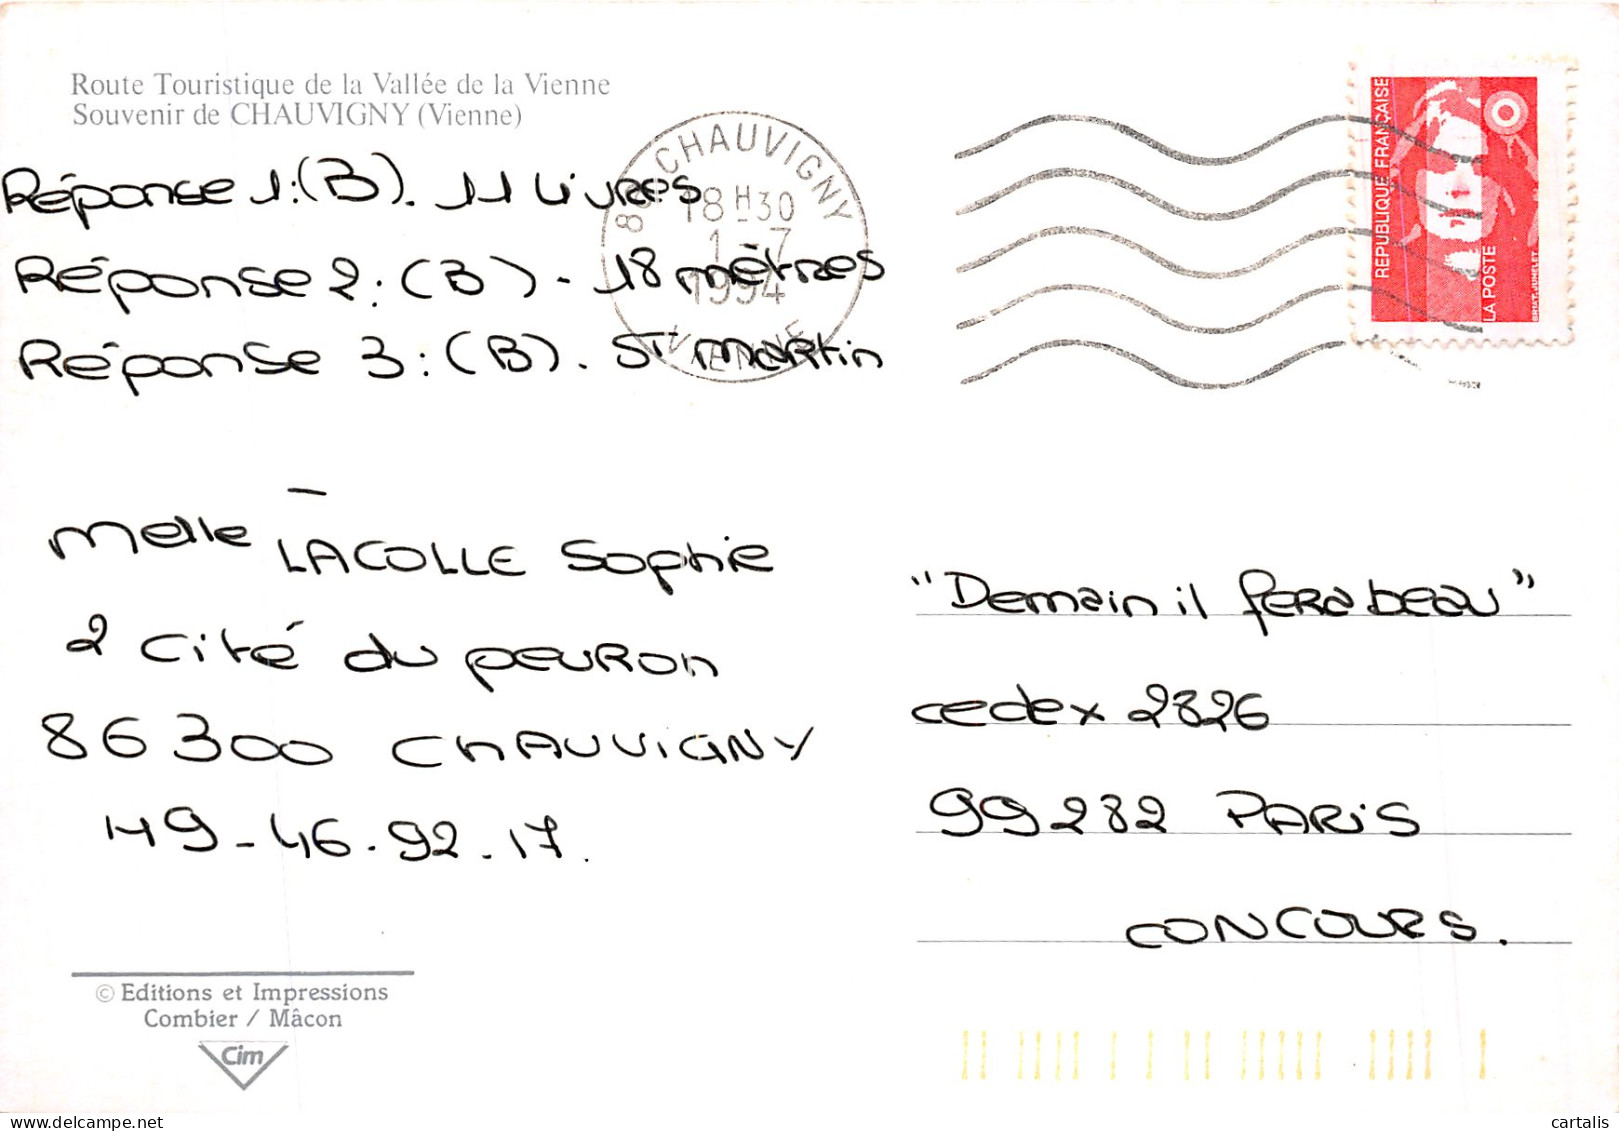 Route Touristique de la Vallée de la Vienne
Souvenir de CHAUVIGNY (Vienne)
Réponse 1: (B). 11 Livres
Réponse 2: (B) - 18 mètres
Réponse 3: (B). St Martin
CHAUVIGNY
18 H 30
1 - 7
1994
VIENNE
RÉPUBLIQUE FRANÇAISE
LA POSTE
BRIAT. JUMELET
Melle LACOLLE Sophie
2 cité du peuron
86300 CHAUVIGNY
49-46.92.17.
"Demain il fera beau"
cedex 2826
99282 PARIS
CONCOURS.
© Editions et Impressions
Combier / Mâcon
Cim
cartalis
www.delcampe.net